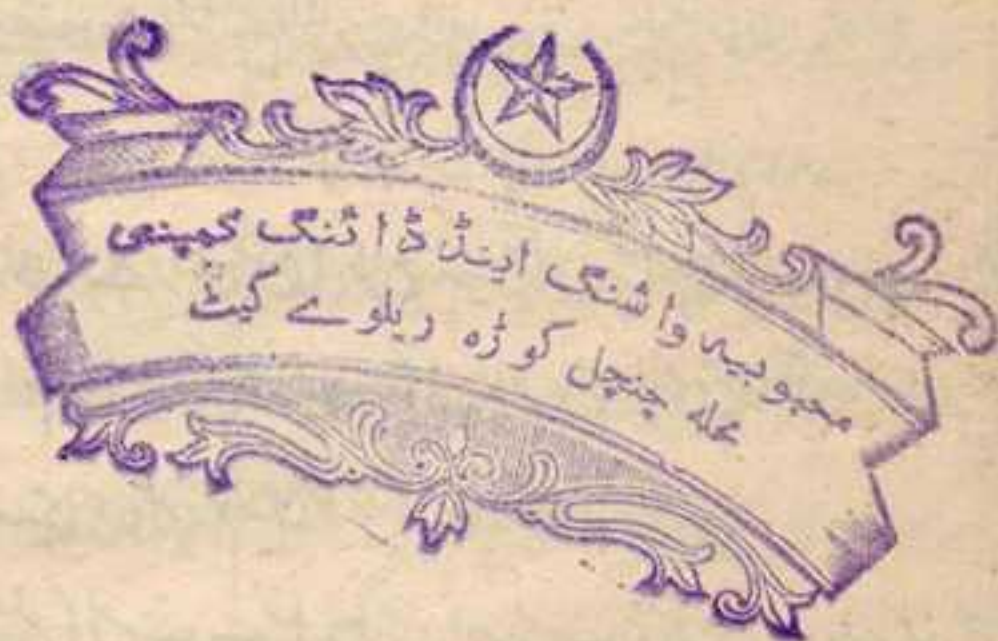 محبوبیہ واشنگ اینڈ ڈائنگ کمپنی
محلہ چنچل گوڑہ ریلوے گیٹ